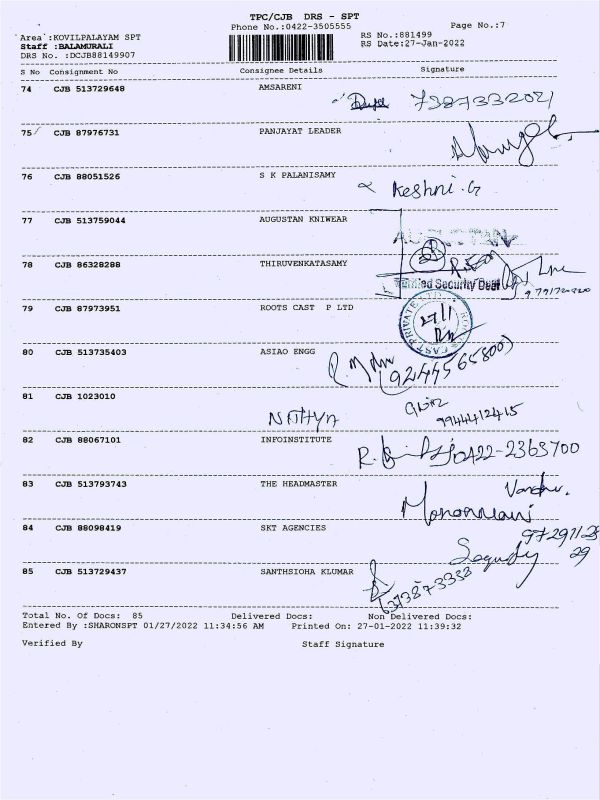 TPC/CJB DRS - SPT
Phone No.:0422-3505555 Page No.:7
Area :KOVILPALAYAM SPT RS No.:881499
Staff :BALAMURALI RS Date:27-Jan-2022
DRS No. :DCJB88149907
S No Consignment No Consignee Details Signature
74 CJB 513729648 AMSARENI
7387332021
75 CJB 87976731 PANJAYAT LEADER
76 CJB 88051526 S K PALANISAMY
Keshni. G
77 CJB 513759044 AUGUSTAN KNIWEAR
78 CJB 86328288 THIRUVENKATASAMY
Security Dept
79 CJB 87973951 ROOTS CAST P LTD
27/1
80 CJB 513735403 ASIAO ENGG
9244565800
81 CJB 1023010
Nithya 9944412415
82 CJB 88067101 INFOINSTITUTE
0422-2363700
83 CJB 513793743 THE HEADMASTER
84 CJB 88098419 SKT AGENCIES
85 CJB 513729437 SANTHSIOHA KLUMAR
Total No. Of Docs: 85 Delivered Docs: Non Delivered Docs:
Entered By :SHARONSPT 01/27/2022 11:34:56 AM Printed On: 27-01-2022 11:39:32
Verified By Staff Signature